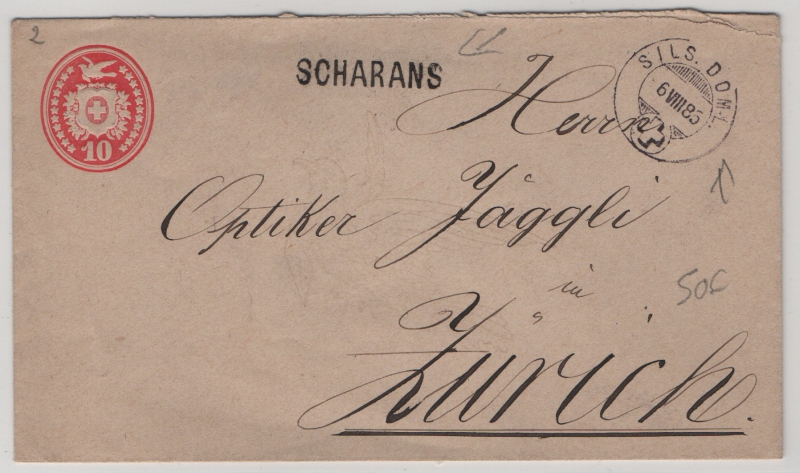 2
10
SCHARANS
SILS. DOML.
6 VIII 83
Herrn
Optiker Jäggli
in
Zürich.
50f